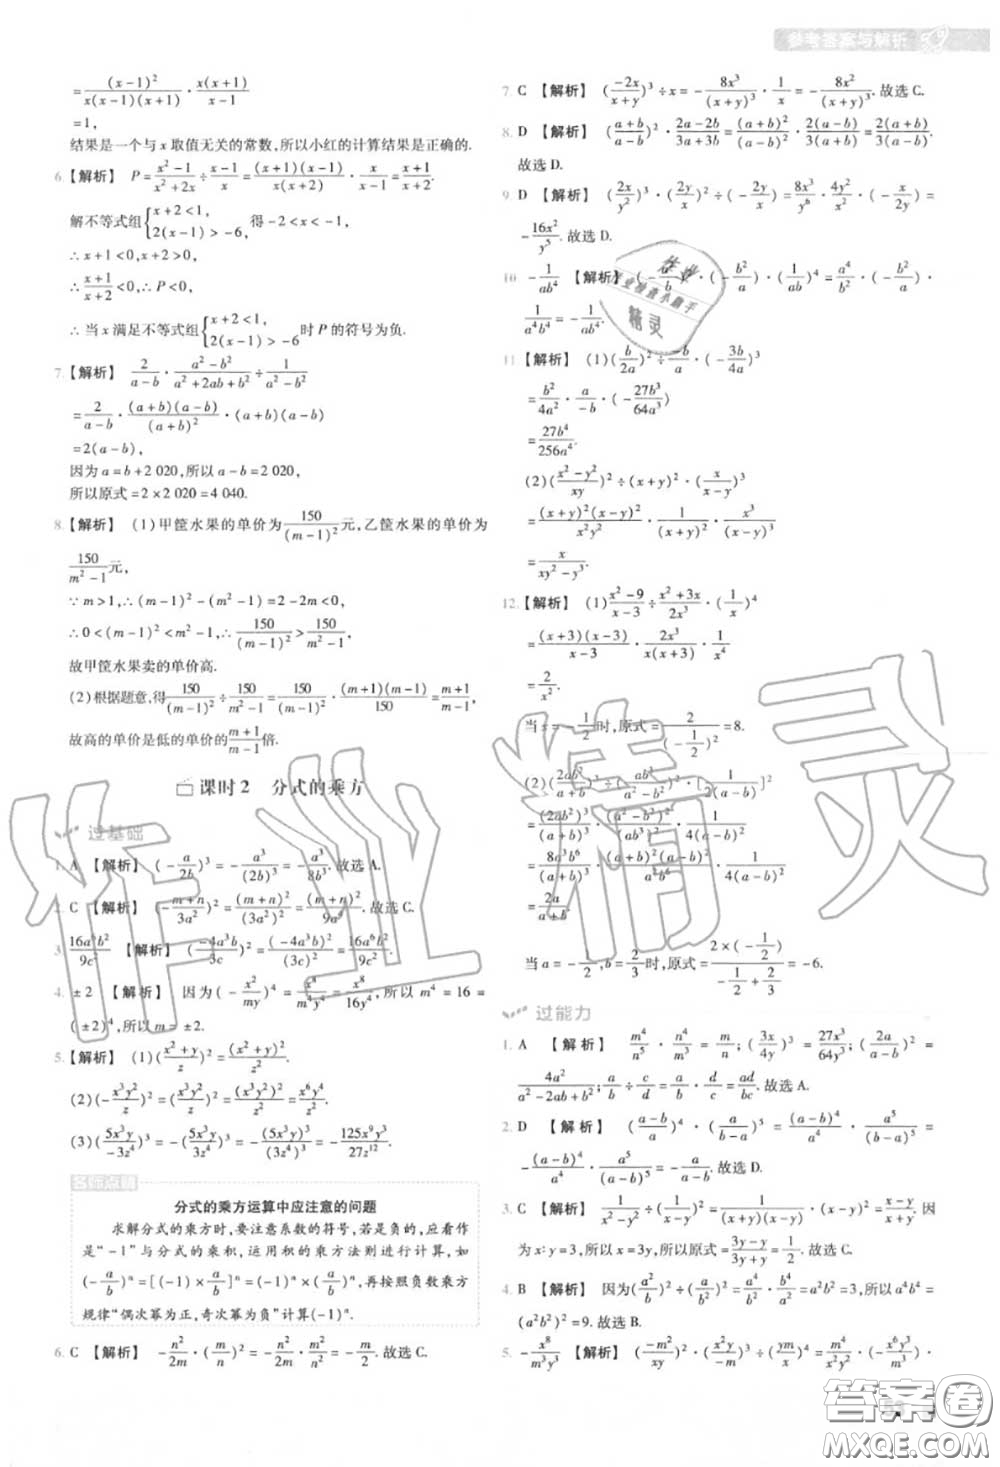 参考答案与解析
=(x-1)²/[x(x-1)(x+1)]·x(x+1)/(x-1)
=1,
结果是一个与x取值无关的常数,所以小红的计算结果是正确的.
6.【解析】 P=(x²-1)/(x²+2x)÷(x-1)/x=(x+1)(x-1)/[x(x+2)]·x/(x-1)=(x+1)/(x+2).
解不等式组{x+2<1, 2(x-1)>-6, 得-2<x<-1,
∴x+1<0,x+2>0,
∴(x+1)/(x+2)<0,∴P<0,
∴当x满足不等式组{x+2<1, 2(x-1)>-6时P的符号为负.
7.【解析】 2/(a-b)·(a²-b²)/(a²+2ab+b²)÷1/(a²-b²)
=2/(a-b)·(a+b)(a-b)/(a+b)²·(a+b)(a-b)
=2(a-b),
因为a=b+2 020,所以a-b=2 020,
所以原式=2×2 020=4 040.
8.【解析】 (1)甲筐水果的单价为150/(m-1)²元,乙筐水果的单价为
150/(m²-1)元,
∵m>1,∴(m-1)²-(m²-1)=2-2m<0,
∴0<(m-1)²<m²-1,∴150/(m-1)²>150/(m²-1),
故甲筐水果卖的单价高.
(2)根据题意,得150/(m-1)²÷150/(m²-1)=150/(m-1)²·(m+1)(m-1)/150=(m+1)/(m-1),
故高的单价是低的单价的(m+1)/(m-1)倍.
课时2 分式的乘方
过基础
1. A 【解析】 (-a/2b)³=-a³/(2b)³=-a³/8b³.故选A.
2. C 【解析】 (-(m+n)/3a²)²=(m+n)²/(3a²)²=(m+n)²/9a⁴.故选C.
3. 16a⁶b²/9c² 【解析】 (-4a³b/3c)²=(-4a³b)²/(3c)²=16a⁶b²/9c².
4. ±2 【解析】 因为(-x²/my)⁴=x⁸/m⁴y⁴=x⁸/16y⁴,所以m⁴=16=
(±2)⁴,所以m=±2.
5.【解析】 (1)((x²+y)/z)²=(x²+y)²/z².
(2)(-x³y²/z)²=(x³y²/z)²=(x³y²)²/z²=x⁶y⁴/z².
(3)(5x³y/-3z⁴)³=-(5x³y/3z⁴)³=-(5x³y)³/(3z⁴)³=-125x⁹y³/27z¹².
名师点睛
分式的乘方运算中应注意的问题
求解分式的乘方时,要注意系数的符号,若是负的,应看作
是“-1”与分式的乘积,运用积的乘方法则进行计算,如
(-a/b)ⁿ=[(-1)×a/b]ⁿ=(-1)ⁿ×(a/b)ⁿ,再按照负数乘方
规律“偶次幂为正,奇次幂为负”计算(-1)ⁿ.
6. C 【解析】 -n²/2m·(m/n)²=-n²/2m·m²/n²=-m/2.故选C.
7. C 【解析】 (-2x/(x+y))³÷x=-8x³/(x+y)³·1/x=-8x²/(x+y)³.故选C.
8. D 【解析】 ((a+b)/(a-b))²·(2a-2b)/(3a+3b)=(a+b)²/(a-b)²·2(a-b)/3(a+b)=2(a+b)/3(a-b).
故选D.
9. D 【解析】 (2x/y²)³·(2y/x)²÷(-2y/x)=8x³/y⁶·4y²/x²·(-x/2y)=
-16x²/y⁵.故选D.
10. -1/ab⁴ 【解析】
1/a⁴b⁴=-1/ab⁴.
11.【解析】 (1)(b/2a)²÷·(-3b/4a)³
=b²/4a²·a/-b·(-27b³/64a³)
=27b⁴/256a⁴.
(2)((x²-y²)/xy)²÷(x+y)²·(x/(x-y))³
=(x+y)²(x-y)²/x²y²·1/(x+y)²·x³/(x-y)³
=x/(xy²-y³).
12.【解析】 (1)(x²-9)/(x-3)÷(x²+3x)/2x³·(1/x)⁴
=(x+3)(x-3)/(x-3)·2x³/x(x+3)·1/x⁴
=2/x².
当x=-1/2时,原式=2/(-1/2)²=8.
=(2ab²)³/(a+b)³÷
=8a³b⁶/(a+b)³·(a+b)²(a-b)²/a²b⁶·1/4(a-b)²
=2a/(a+b).
当a=-1/2,b=2/3时,原式=2×(-1/2)/(-1/2+2/3)=-6.
过能力
1. A 【解析】 m⁴/n⁵·n⁴/m³=m/n;(3x/4y)³=27x³/64y³;(2a/(a-b))²=
4a²/(a²-2ab+b²);a/b÷c/d=a/b·d/c=ad/bc.故选A.
2. D 【解析】 ((a-b)/a)⁴·(a/(b-a))⁵=(a-b)⁴/a⁴·a⁵/(b-a)⁵=
-(a-b)⁴/a⁴·a⁵/(a-b)⁵=-a/(a-b).故选D.
3. C 【解析】 1/(x²+xy)÷1/(x²-y²)·=1/·(x+y)(x-y)·(x-y)²=(x-y)/x.因
为x∶y=3,所以x=3y,所以原式=(3y-y)/3y=.故选C.
4. B 【解析】 因为(a²/b)²÷(a/b²)²=a⁴/b²·b⁴/a²=a²b²=3,所以a⁴b⁴=
(a²b²)²=9.故选B.
5. -x⁸/m³y³ 【解析】 (-m²/xy)²·(-x²y/m³)³÷(ym/x)⁴=m⁴/x²y²·(-x⁶y³/m⁹)·
作业检查小助手
精灵
作业精灵
答案圈
MXQE.COM